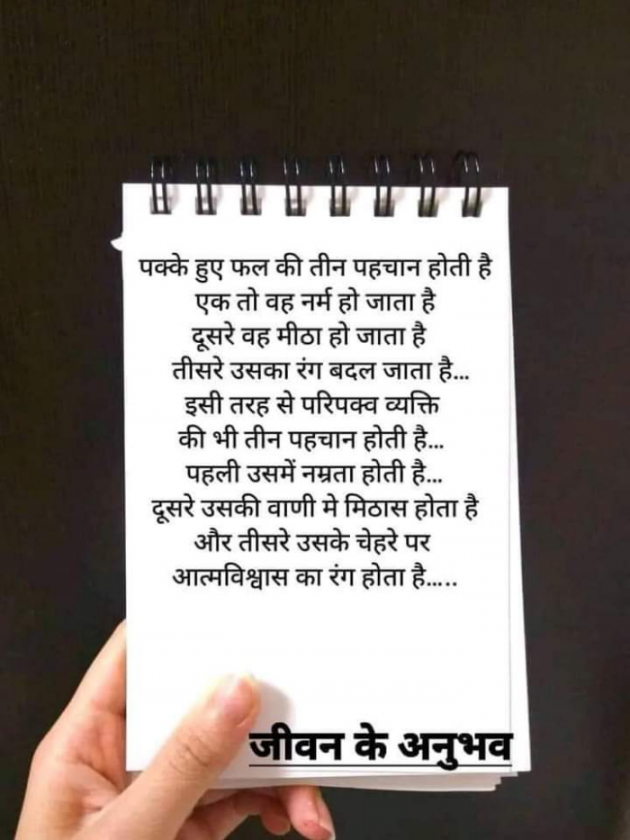 पक्के हुए फल की तीन पहचान होती है
एक तो वह नर्म हो जाता है
दूसरे वह मीठा हो जाता है
तीसरे उसका रंग बदल जाता है...
इसी तरह से परिपक्व व्यक्ति
की भी तीन पहचान होती है...
पहली उसमें नम्रता होती है...
दूसरे उसकी वाणी मे मिठास होता है
और तीसरे उसके चेहरे पर
आत्मविश्वास का रंग होता है.....
जीवन के अनुभव